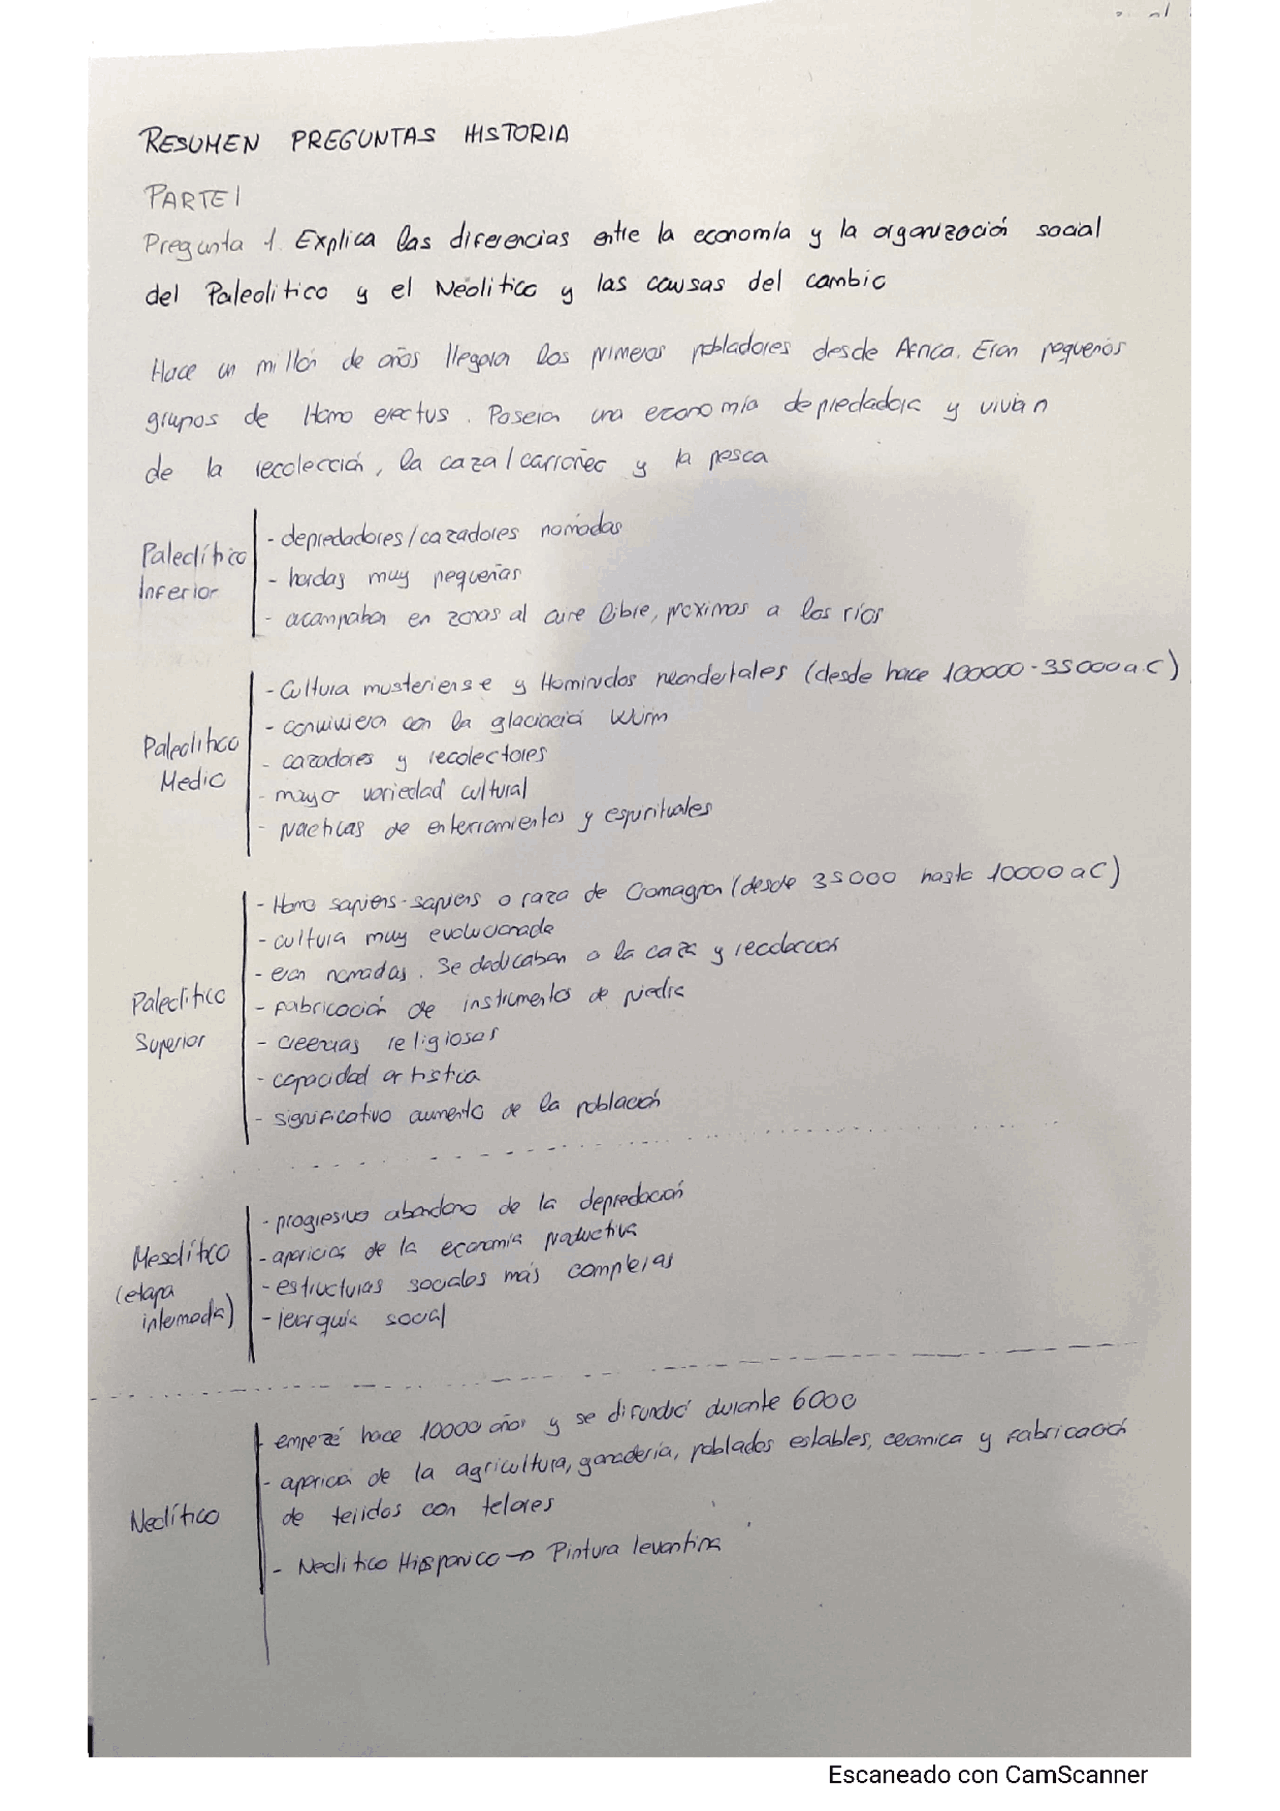 RESUMEN PREGUNTAS HISTORIA
PARTE 1
Pregunta 1. Explica las diferencias entre la economía y la organización social
del Paleolitico y el Neolitico y las causas del cambio
Hace un millón de años llegaron los primeros pobladores desde Africa. Eran pequeños
grupos de Homo erectus. Poseian una economía depredadora y vivian
de la recolección, la caza/carroñeo y la pesca
Paleolítico Inferior
- depredadores/cazadores nomadas
- hordas muy pequeñas
- acampaban en zonas al aire libre, proximas a los ríos
Paleolitico Medio
- Cultura musteriense y Hominidos neandertales (desde hace 100000-35000 a.C)
- convivieron con la glaciación Würm
- cazadores y recolectores
- mayor variedad cultural
- practicas de enterramientos y espirituales
Paleolítico Superior
- Homo sapiens-sapiens o raza de Cromagnon (desde 35000 hasta 10000 aC)
- cultura muy evolucionada
- eran nomadas. Se dedicaban a la caza y recolección
- fabricación de instrumentos de piedra
- creencias religiosas
- capacidad artistica
- significativo aumento de la población
Mesolítico (etapa intermedia)
- progresivo abandono de la depredación
- aparición de la economia productiva
- estructuras sociales más complejas
- jerarquia social
Neolítico
- empezó hace 10000 años y se difundió durante 6000
- aparición de la agricultura, ganadería, poblados estables, ceramica y fabricación
de tejidos con telares
- Neolitico Hispanico → Pintura levantina
Escaneado con CamScanner